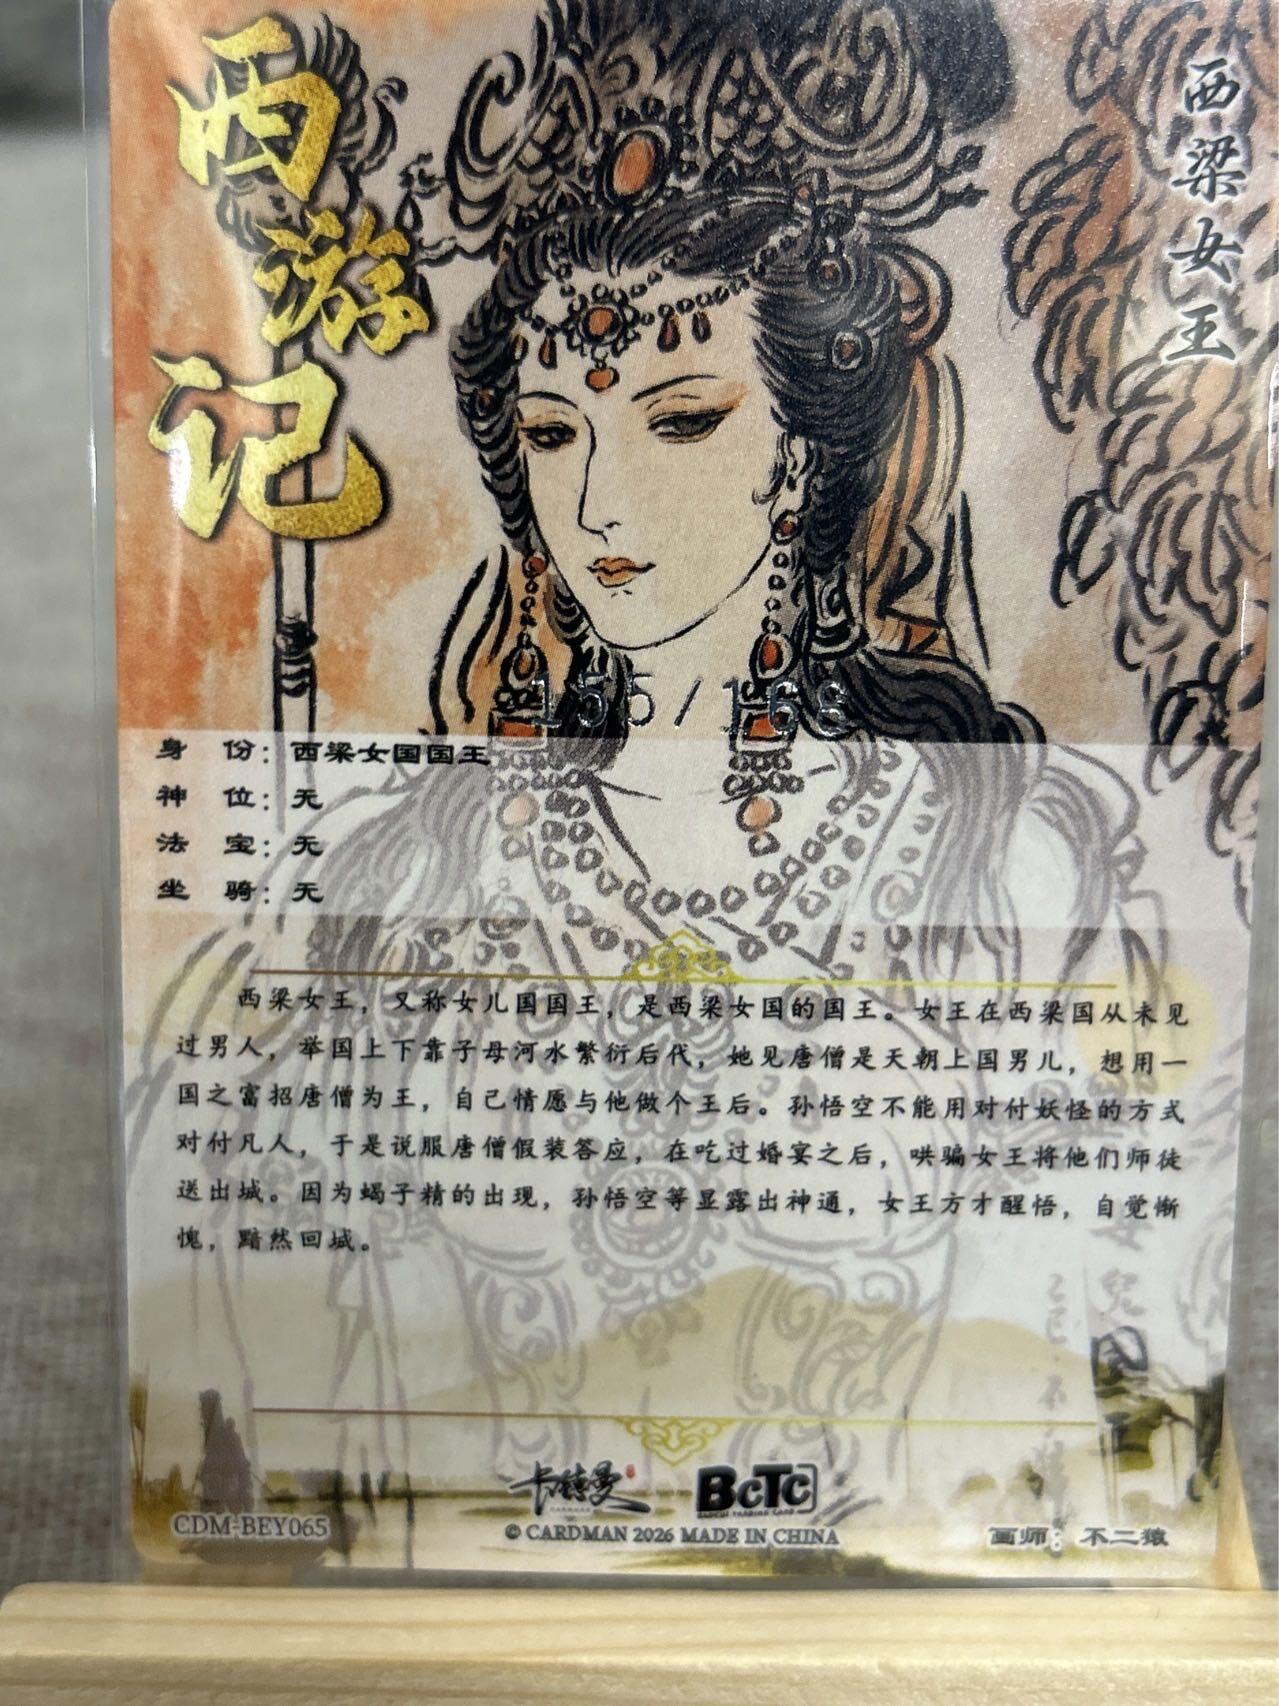 西游记
西梁女王
155/168
身 份：西梁女国国王
神 位：无
法 宝：无
坐 骑：无
西梁女王，又称女儿国国王，是西梁女国的国王。女王在西梁国从未见
过男人，举国上下靠子母河水繁衍后代，她见唐僧是天朝上国男儿，想用一
国之富招唐僧为王，自己情愿与他做个王后。孙悟空不能用对付妖怪的方式
对付凡人，于是说服唐僧假装答应，在吃过婚宴之后，哄骗女王将他们师徒
送出城。因为蝎子精的出现，孙悟空等显露出神通，女王方才醒悟，自觉惭
愧，黯然回城。
兒
国
王
卡德曼
BCTC
CDM-BEY065
© CARDMAN 2026 MADE IN CHINA
画师：不二猿